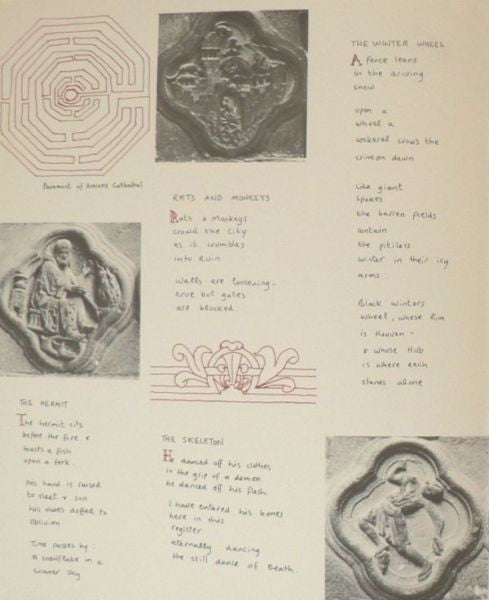 Pavement of Amiens Cathedral
RATS AND MONKEYS
Rats & Monkeys
crowd the City
as it crumbles
into Ruin
Walls are loosening.
true but gates
are blocked
THE WINTER WHEEL
A fence leans
in the driving
snow
upon a
wheel a
cockerel crows the
crimson dawn
Like giant
spokes
the barren fields
contain
the pitiless
winter in their icy
arms:
Black Winters
Wheel, whose Rim
is Heaven -
& whose Hub
is where each
stands alone
THE HERMIT
The hermit sits
before the fire &
roasts a fish
upon a fork.
his hand is raised
to sleet & sun
his shoes doffed to
oblivion
Time passes by:
a snowflake in a
summer sky
THE SKELETON
He danced off his clothes
in the grip of a demon
he danced off his flesh
I have entered his bones
here in this
register
eternally dancing
the still dance of Death.